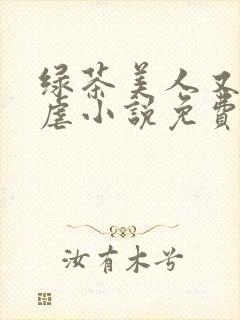 绿茶美人又
虐小說免費
汝有木兮